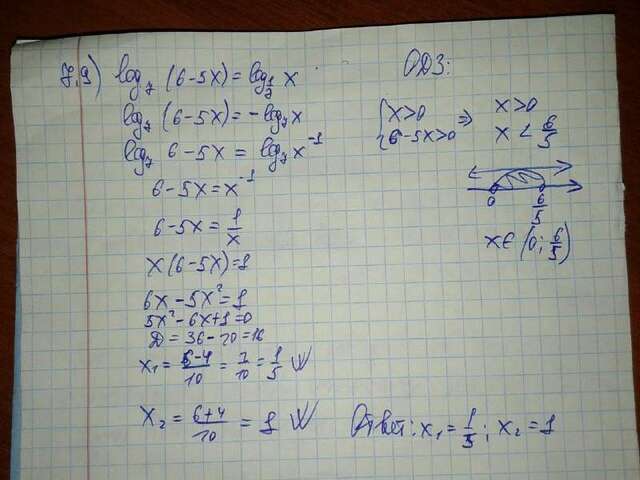 7.9) log₇ (6-5x) = log_{1/7} x
log₇ (6-5x) = -log₇x
log₇ 6-5x = log₇ x⁻¹
6-5x = x⁻¹
6-5x = 1/x
x(6-5x)=1
6x-5x²=1
5x²-6x+1=0
D = 36-20=16
x₁ = (6-4)/10 = 2/10 = 1/5
x₂ = (6+4)/10 = 1
ОДЗ:
{x>0 ⇒ x>0
{6-5x>0 x < 6/5
0 6/5
x∈ (0; 6/5)
Ответ: x₁ = 1/5; x₂ = 1